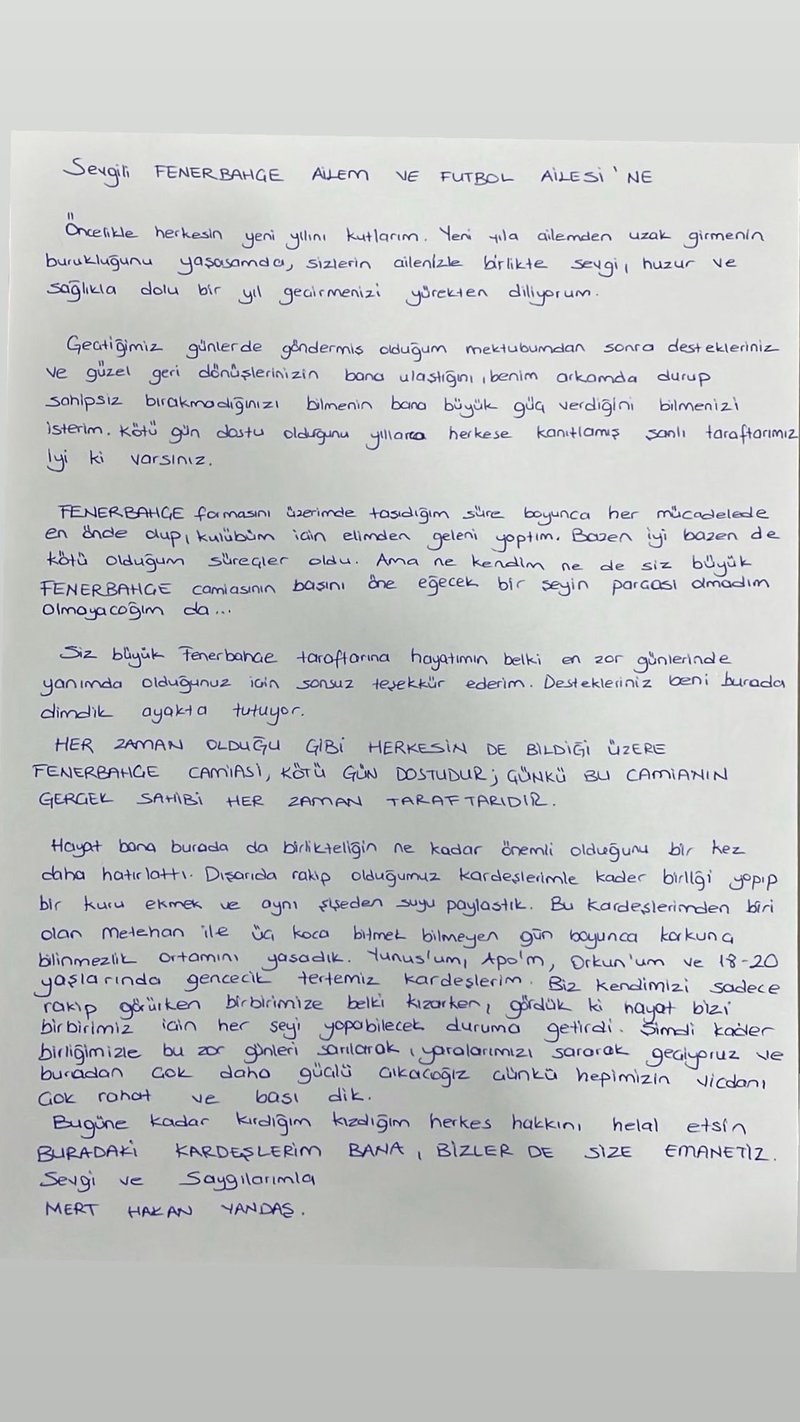 Sevgili FENERBAHÇE AİLEM VE FUTBOL AİLESİ'NE
Öncelikle herkesin yeni yılını kutlarım. Yeni yıla ailemden uzak girmenin
burukluğunu yaşasamda, sizlerin ailenizle birlikte sevgi, huzur ve
sağlıkla dolu bir yıl geçirmenizi yürekten diliyorum.
Geçtiğimiz günlerde göndermiş olduğum mektubumdan sonra destekleriniz
ve güzel geri dönüşlerinizin bana ulaştığını, benim arkamda durup
sahipsiz bırakmadığınızı bilmenin bana büyük güç verdiğini bilmenizi
isterim. Kötü gün dostu olduğunu yıllarca herkese kanıtlamış şanlı taraftarımız
İyi ki varsınız.
FENERBAHÇE formasını üzerimde taşıdığım süre boyunca her mücadelede
en önde olup, kulübüm için elimden geleni yaptım. Bazen iyi bazen de
kötü olduğum süreçler oldu. Ama ne kendim ne de siz büyük
FENERBAHÇE camiasının başını öne eğecek bir şeyin parçası olmadım
olmayacağım da...
Siz büyük Fenerbahçe taraftarına hayatımın belki en zor günlerinde
yanımda olduğunuz için sonsuz teşekkür ederim. Destekleriniz beni burada
dimdik ayakta tutuyor.
HER ZAMAN OLDUĞU GİBİ HERKESİN DE BİLDİĞİ ÜZERE
FENERBAHÇE CAMİASI, KÖTÜ GÜN DOSTUDUR; ÇÜNKÜ BU CAMİANIN
GERÇEK SAHİBİ HER ZAMAN TARAFTARIDIR.
Hayat bana burada da birlikteliğin ne kadar önemli olduğunu bir kez
daha hatırlattı. Dışarıda rakip olduğumuz kardeşlerimle kader birliği yapıp
bir kuru ekmek ve aynı şişeden suyu paylaştık. Bu kardeşlerimden biri
olan Metehan ile üç koca bitmek bilmeyen gün boyunca korkunç
bilinmezlik ortamını yaşadık. Yunus'um, Apo'm, Orkun'um ve 18-20
yaşlarında gencecik tertemiz kardeşlerim. Biz kendimizi sadece
rakip görürken birbirimize belki kızarken, gördük ki hayat bizi
birbirimiz için her şeyi yapabilecek duruma getirdi. Şimdi kader
birliğimizle bu zor günleri sarılarak, yaralarımızı sararak geçiyoruz ve
buradan çok daha güçlü çıkacağız çünkü hepimizin vicdanı
çok rahat ve başı dik.
Bugüne kadar kırdığım kızdığım herkes hakkını helal etsin
BURADAKİ KARDEŞLERİM BANA, BİZLER DE SİZE EMANETİZ.
Sevgi ve Saygılarımla
MERT HAKAN YANDAŞ.